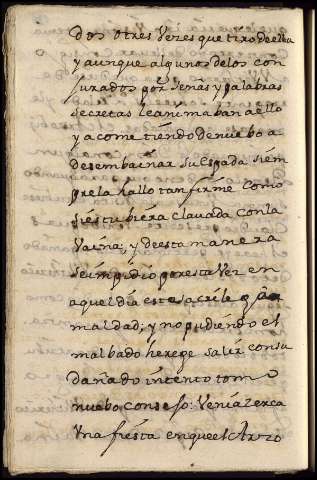 dos otres Vezes que tiro de ella
y aunque algunos delos con
jurados por señas y palabras
secretas le animaban a ello
y acometiendo denuebo a
desembainar su espada siem
pre la hallo tan firme como
si estubiera clavada con la
Vaina, y de esta manera
se impidio por esta Vez en
aquel dia este sacrilega
maldad; y no pudiendo el
malbado herege salir con su
dañado intento tomo
nuebo consejo: Venia zerca
Vna fiesta en que el Arzo